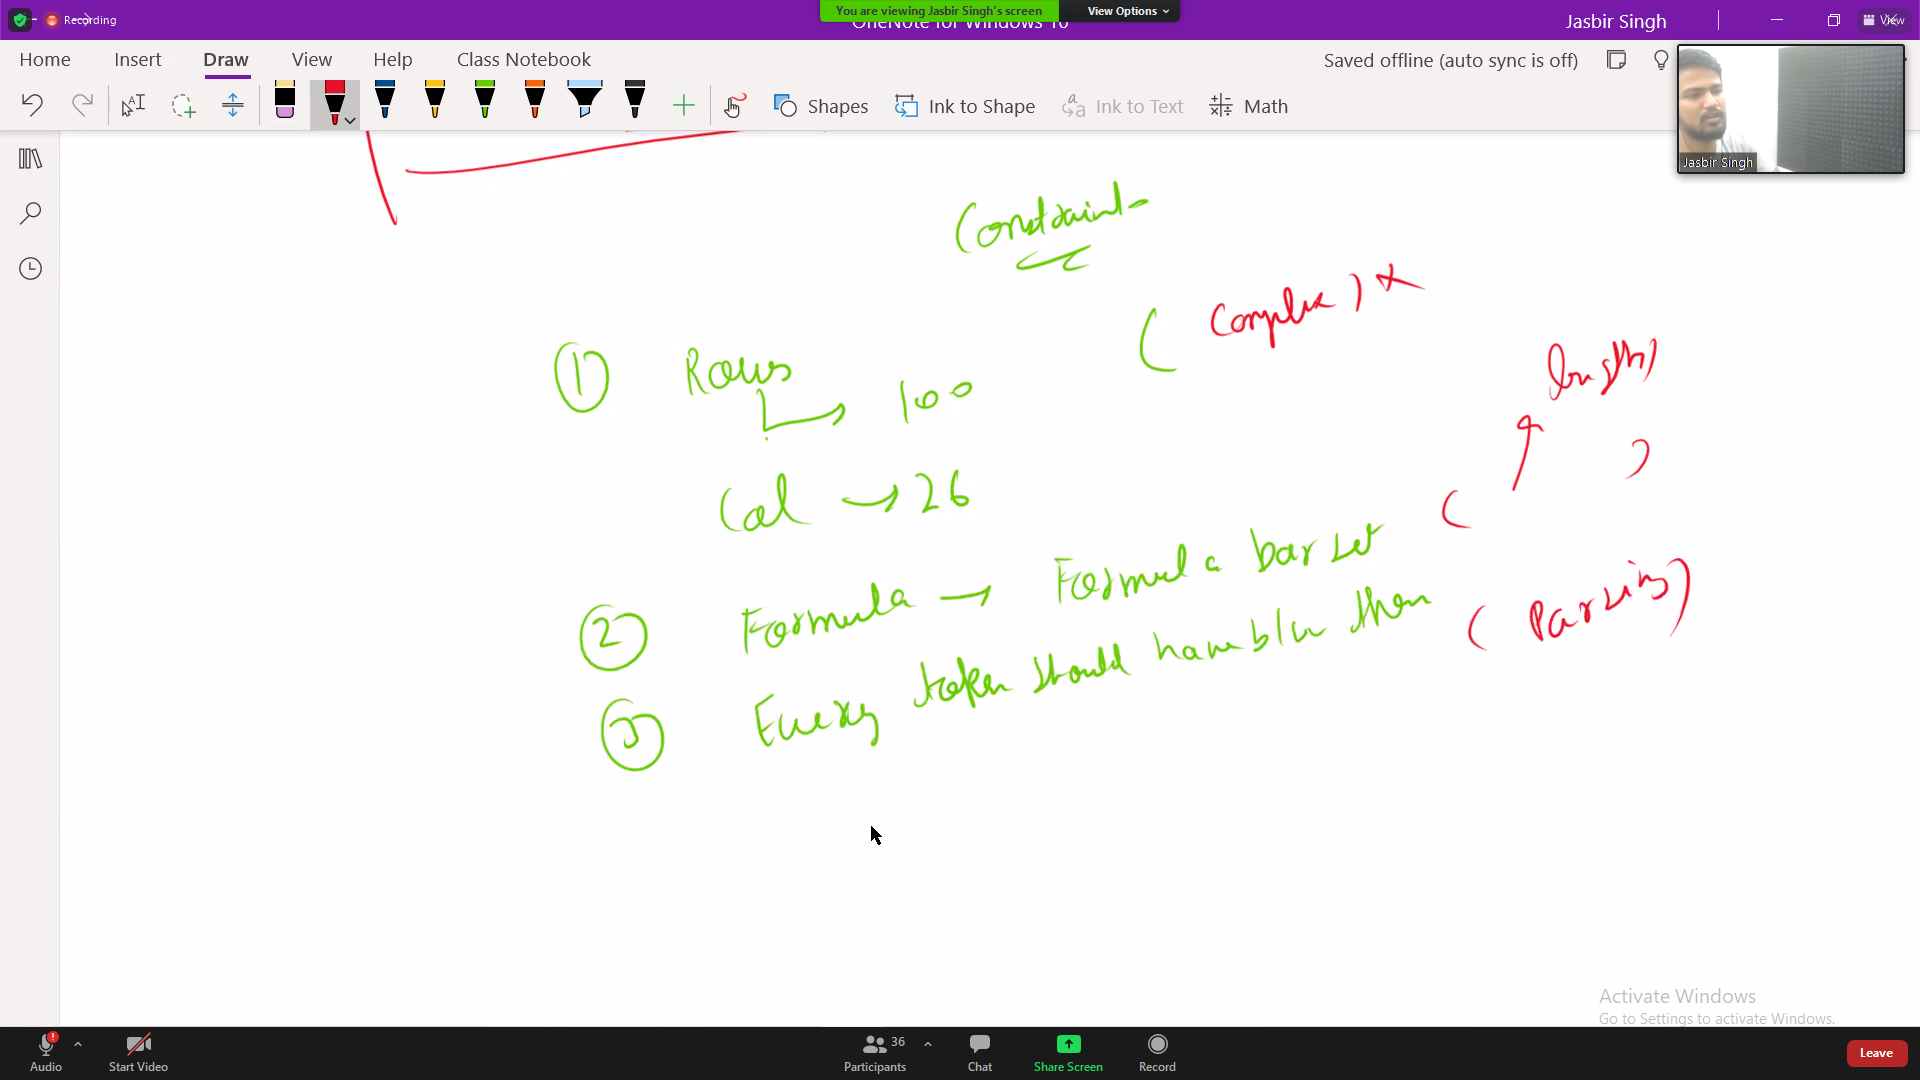 Recording
You are viewing Jasbir Singh's screen
View Options
OneNote for Windows 10
Jasbir Singh
View
Home Insert Draw View Help Class Notebook
Saved offline (auto sync is off)
Shapes Ink to Shape Ink to Text Math
Jasbir Singh
Constraint
(Complex)
① Rows
100
length)
Col → 26
② Formula → Formula bar set
③ Every token should have b/w then
(Parsing)
Activate Windows
Go to Settings to activate Windows.
Audio
Start Video
36
Participants
Chat
Share Screen
Record
Leave